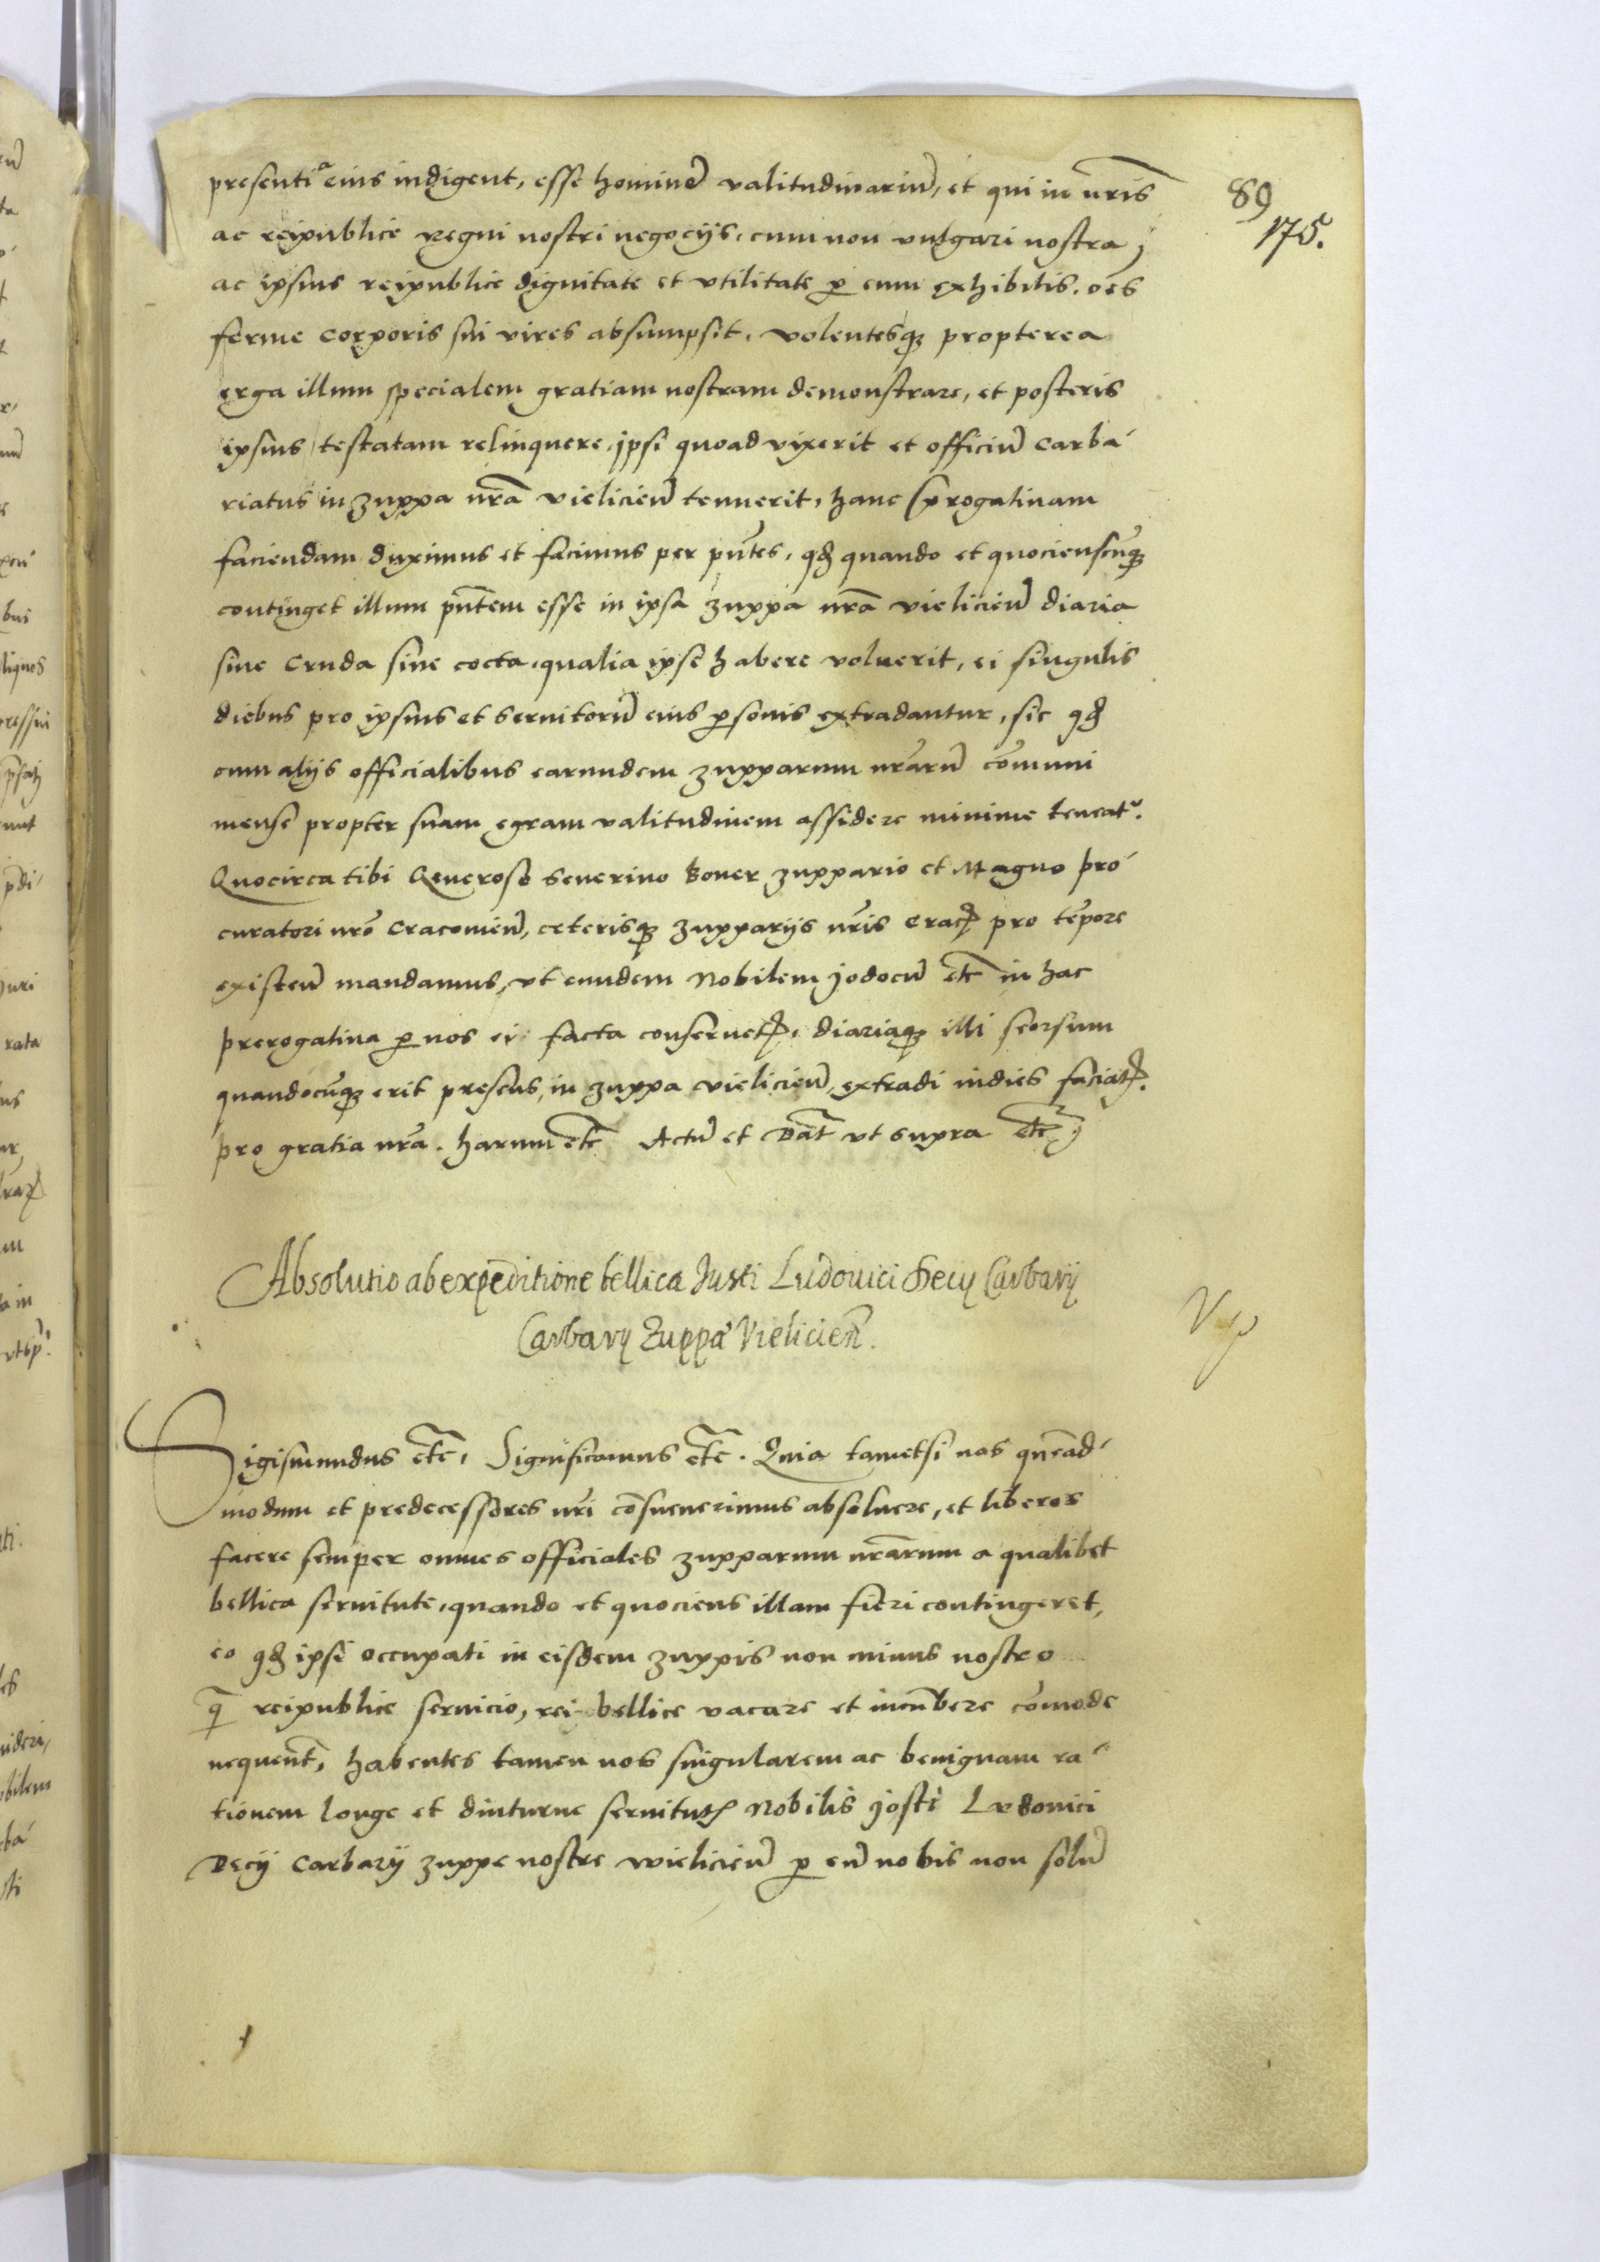 presentia eius indigent, esse hominē valitudinariū, et qui in nr̃is
ac reipublice Regni nostri negocijs, cum non vulgari nostra,
ac ipsius reipublice dignitate et vtilitate p eum exhibitis, oẽs
ferme corporis sui vires absumpsit, volentesq propterea
erga illum specialem gratiam nostram demonstrare, et posteris
ipsius testatam relinquere, jpsi quoad vixerit et officiū carba-
riatus in zuppa nrã vielicieñ tenuerit, hanc prerogatiuam
faciendam duximus et facimus per pñtes, qđ quando et quocienscūq
continget illum pñtem esse in ipsa zuppa nrã vielicieñ diaria
siue cruda siue cocta, qualia ipse habere voluerit, ei singulis
diebus pro ipsius et seruitorū eius psonis extradantur, sic qđ
cum alijs officialibus earundem zupparum nrãrū cõmuni
mense propter suam egram valitudinem assidere minime teneatʳ.
Quocirca tibi Generoso Seuerino Boner zuppario et Magno pro-
curatori nrõ Cracouieñ, ceterisq zupparijs nr̃is Crac̃ pro tẽpore
existeñ mandamus, vt eundem Nobilem jodocū etc̃ in hac
prerogatiua p nos ei facta conseruet̃, diariaq illi seorsum
quandocūq erit presens, in zuppa vielicieñ, extradi indies faciat̃.
pro gratia nrã. harum etc̃ Actū et Dat̃ vt supra etc̃

89
175.

Absolutio ab expeditione bellica Justi Ludouici Decij Carbarij
Carbarij Zuppæ Vielicieñ.

Sigismundus etc̃, Significamus etc̃. Quia tametsi nos quẽad-
modum et predecessores nr̃i cõsueuerimus absoluere, et liberos
facere semper omnes officiales zupparum nrãrum a qualibet
bellica seruitute, quando et quociens illam fieri contingeret,
eo qđ ipsi occupati in eisdem zuppis non minus nostro
q̃ reipublice seruicio, rei bellice vacare et incũbere cõmode
nequeñt, habentes tamen nos singularem ac benignam ra-
tionem longe et diuturne seruitut̃ Nobilis josti Ludouici
Decij Carbarij zuppe nostre wielicieñ p eū nobis non solū